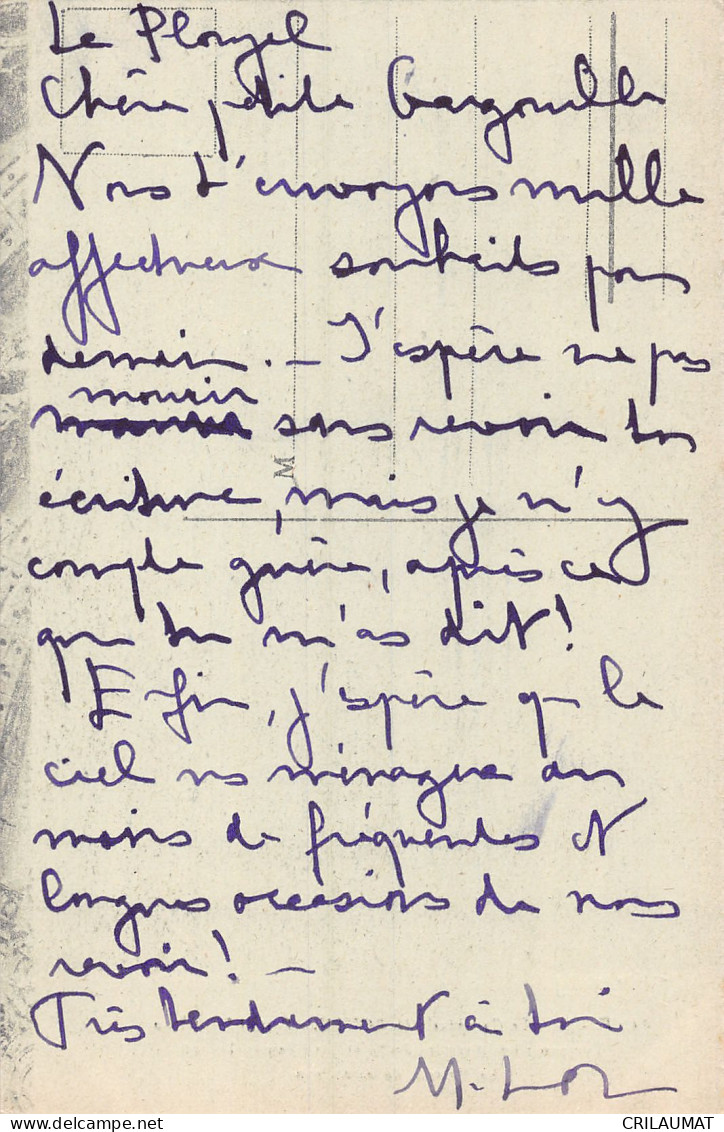 Le
Chère petite Gargouille
Nous t'envoyons mille
affectueux souhaits pour
demain. — J'espère ne pas
mourir
sans revoir ton
écriture, mais je n'y
compte guère, après ce
que tu m'as dit!
Enfin, j'espère que le
ciel ns ménagera au
moins de fréquentes et
longues occasions de nous
revoir! —
Très tendrement à toi
CRILAUMAT